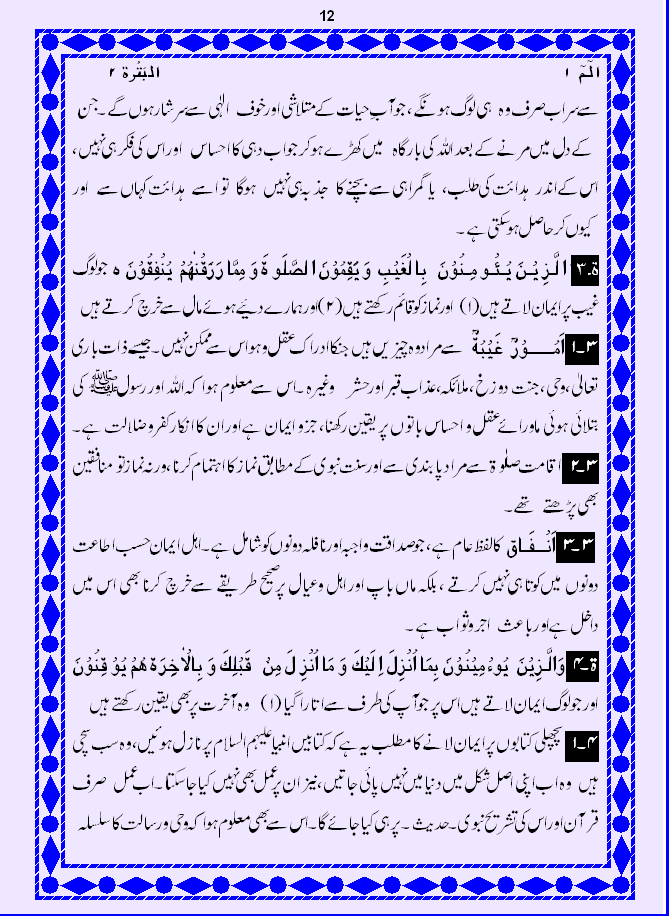 12
الٓمّٓ ۱ البقرة ۲
سے سراب صرف وہ ہی لوگ ہونگے، جو آب حیات کے متلاشی اور خوف الٰہی سے سرشار ہوں گے۔ جن
کے دل میں مرنے کے بعد اللہ کی بارگاہ میں کھڑے ہو کر جواب دہی کا احساس اور اس کی فکر ہی نہیں،
اس کے اندر ہدائت کی طلب، یا گمراہی سے بچنے کا جذبہ ہی نہیں ہوگا تو اسے ہدائت کہاں سے اور
کیوں کر حاصل ہو سکتی ہے۔
ة۔۳ الَّزِیْنَ یُئُومِنُوْنَ بِالْغَیْبِ وَیُقِمُوْنَ الصَّلَوةَ وَ مِمَّا رَزَقْنٰھُمْ یُنْفِقُوْنَ ہ جو لوگ
غیب پر ایمان لاتے ہیں(۱) اور نماز کو قائم رکھتے ہیں(۲) اور ہمارے دئیے ہوئے مال سے خرچ کرتے ہیں
۳۔۱ اَمُوْرٌ غَیْبَةٌ سے مراد وہ چیزیں ہیں جنکا ادراک عقل و ہواس سے ممکن نہیں۔ جیسے ذات باری
تعالٰی، وحی، جنت دوزخ، ملائکہ، عذاب قبر اور حشر وغیرہ۔ اس سے معلوم ہوا کہ اللہ اور رسول ﷺ کی
بتلائی ہوئی ماورائے عقل و احساس باتوں پر یقین رکھنا، جزو ایمان ہے اور ان کا انکار کفر و ضلالت ہے۔
۳۔۲ اقامت صلٰوة سے مراد پابندی سے اور سنت نبوی کے مطابق نماز کا اہتمام کرنا، ورنہ نماز تو منافقین
بھی پڑھتے تھے۔
۳۔۳ اَنْفَاق کا لفظ عام ہے، جو صداقت واجبہ اور نافلہ دونوں کو شامل ہے۔ اہل ایمان حسب اطاعت
دونوں میں کوتاہی نہیں کرتے، بلکہ ماں باپ اور اہل و عیال پر صحیح طریقے سے خرچ کرنا بھی اس میں
داخل ہے اور باعث اجر و ثواب ہے۔
ة۔۴ وَالَّزِیْنَ یُوءمِیْنُوْنَ بِمَا اُنْزِلَ اِلَیْكَ وَ مَا اُنْزِلَ مِنْ قَبْلِكَ وَ بِالْاٰخِرَةِ ھُمْ یُوْقِنُوْنَ
اور جو لوگ ایمان لاتے ہیں اس پر جو آپ کی طرف سے اتارا گیا (۱) وہ آخرت پر بھی یقین رکھتے ہیں
۴۔۱ پچھلی کتابوں پر ایمان لانے کا مطلب یہ ہے کہ کتابیں انبیا علیہم السلام پر نازل ہوئیں، وہ سب سچی
ہیں وہ اب اپنی اصل شکل میں دنیا میں نہیں پائی جاتیں، نیز ان پر عمل بھی نہیں کیا جا سکتا۔ اب عمل صرف
قرآن اور اس کی تشریح نبوی۔ حدیث۔ پر ہی کیا جائے گا۔ اس سے بھی معلوم ہوا کہ وحی و رسالت کا سلسلہ